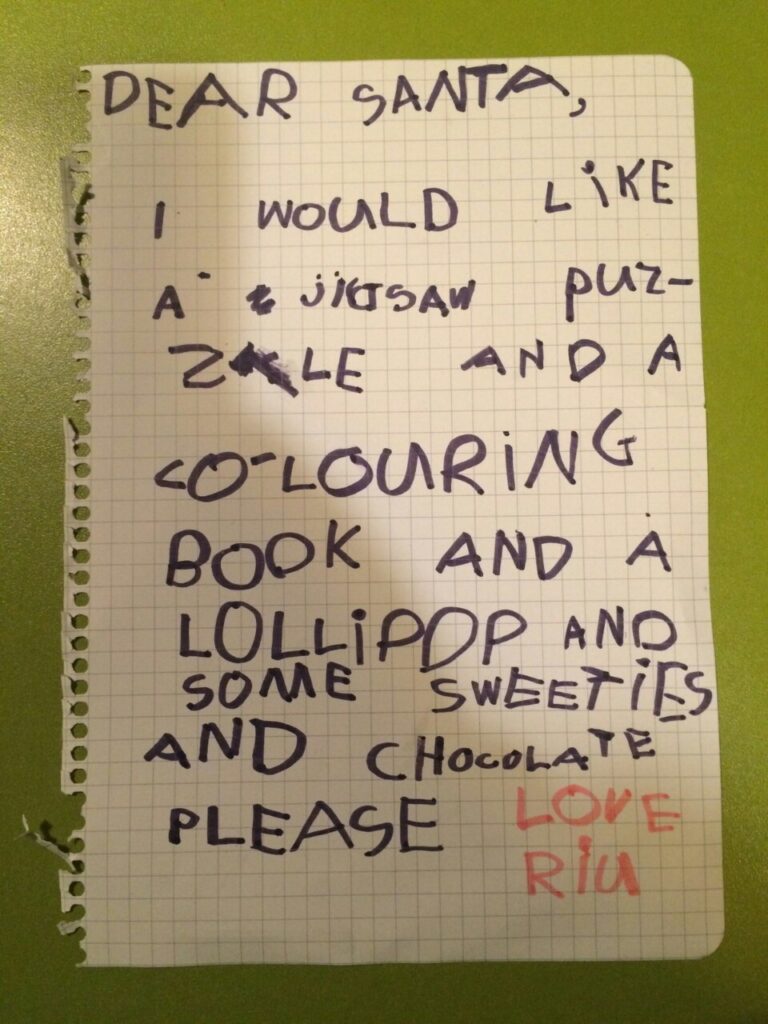 DEAR SANTA,
I WOULD LiKE
A JiGSAW PUZ-
ZLE AND A
CO-LOURiNG
BOOK AND A
LOLLiPOP AND
SOME SWEETiES
AND CHOCOLATE
PLEASE LOVE
RiU